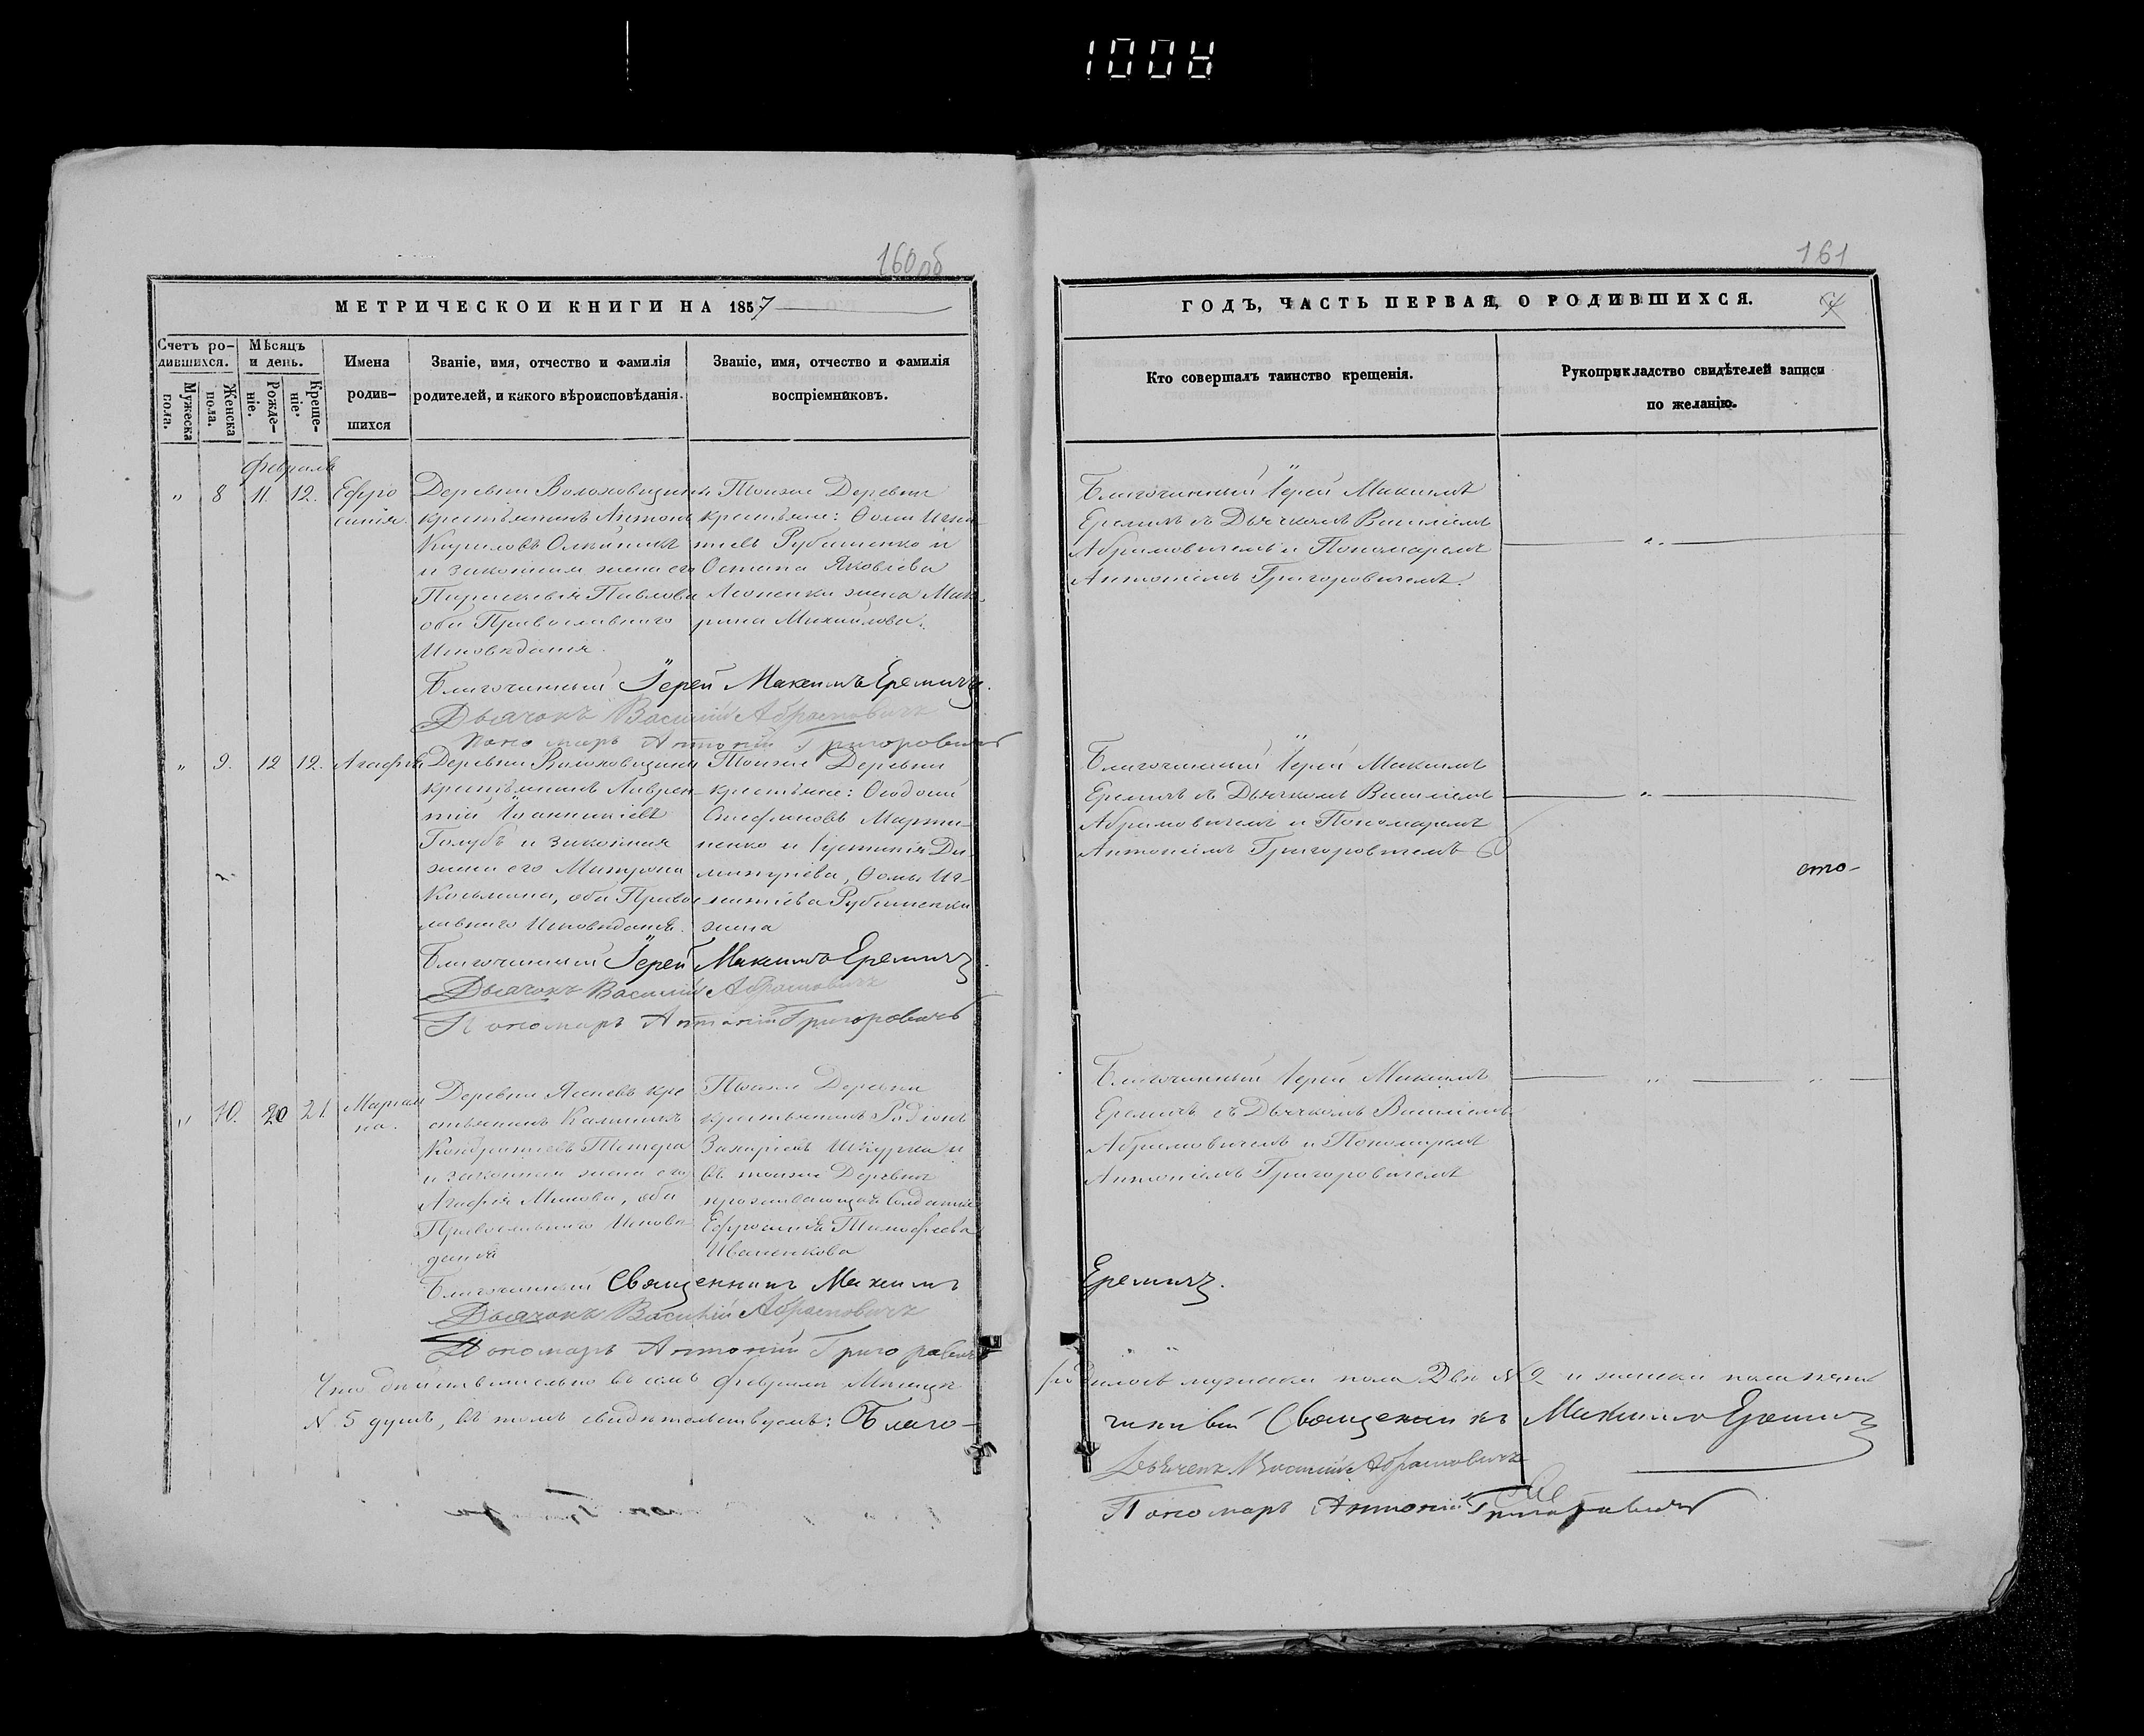 1008
160об
МЕТРИЧЕСКОЙ КНИГИ НА 1857
Счетъ родившихся.
Мужеска пола.
Женска пола.
Мѣсяцъ и день.
Рожденіе.
Крещеніе.
Имена родившихся
Званіе, имя, отчество и фамилія
родителей, и какого вѣроисповѣданія.
Званіе, имя, отчество и фамилія
воспріемниковъ.
Февраль
" 8 11. 12.
Ефро
синія.
Деревни Волоховщины
крестьянинъ Антонъ
Кириловъ
и законная жена его
Параскевія Павлова
оба Православнаго
Исповѣданія.
Тойже Деревни
крестьяне: Ѳома Игна-
тіевъ Рубашенко и
Остапа Яковлева
жена Ма-
рина Михайлова.
Благочинный Іерей Максимъ Еремичъ.
Дьячокъ Василій Абрамовичъ
Пономарь Антоній Григоровичъ
" 9. 12 12.
Агафія
Деревни Волоховщины
крестьянинъ Лаврен-
тій Іоанникіевъ
Голубъ и законная
жена его Матрона
Косьмина, оба Правос
лавнаго Исповѣданія.
Тойже Деревни
крестьяне: Ѳеодосій
Стефановъ Марти-
ненко и Іустинія Ди-
митріева, Ѳомы Иг-
натіева Рубашенки
жена
Благочинный Іерей Максимъ Еремичъ.
Дьячокъ Василій Абрамовичъ
Пономарь Антоній Григоровичъ
" 10. 20 21.
Марiан
на.
Деревни Ясневъ кре
стьянинъ
Кондратіевъ Тетера
и законная жена его
Агафія Минова, оба
Православнаго Исповѣ
данія
Тойже Деревни
крестьянинъ Родіонъ
Захаріевъ Шкурка и
въ тойже Деревни
проживающая Солдатка
Ефросинія Тимофеева
Иваненкова
Благочинный Священникъ Максимъ
Дьячокъ Василій Абрамовичъ
Пономарь Антоній Григоровичъ
Что дѣйствительно въ семъ Февралѣ Мѣсяцѣ
N 5 душъ, въ томъ свидѣтельствуемъ: Благо-
161
ГОДЪ, ЧАСТЬ ПЕРВАЯ, О РОДИВШИХСЯ.
Кто совершалъ таинство крещенія.
Рукоприкладство свидѣтелей записи
по желанію.
Благочинный Іерей Максимъ
Еремичъ съ Дьячкомъ Василіемъ
Абрамовичемъ и Пономаремъ
Антоніемъ Григоровичемъ.
Благочинный Іерей Максимъ
Еремичъ съ Дьячкомъ Василіемъ
Абрамовичемъ и Пономаремъ
Антоніемъ Григоровичемъ
сто-
Благочинный Іерей Максимъ
Еремичъ съ Дьячкомъ Василіемъ
Абрамовичемъ и Пономаремъ
Антоніемъ Григоровичемъ
Еремичъ.
родилось мужеска пола Двѣ N 2 и женска пола пять
чинный Священникъ Максимъ Еремичъ
Дьячекъ Василій Абрамовичъ
Пономарь Антоній Григоровичъ